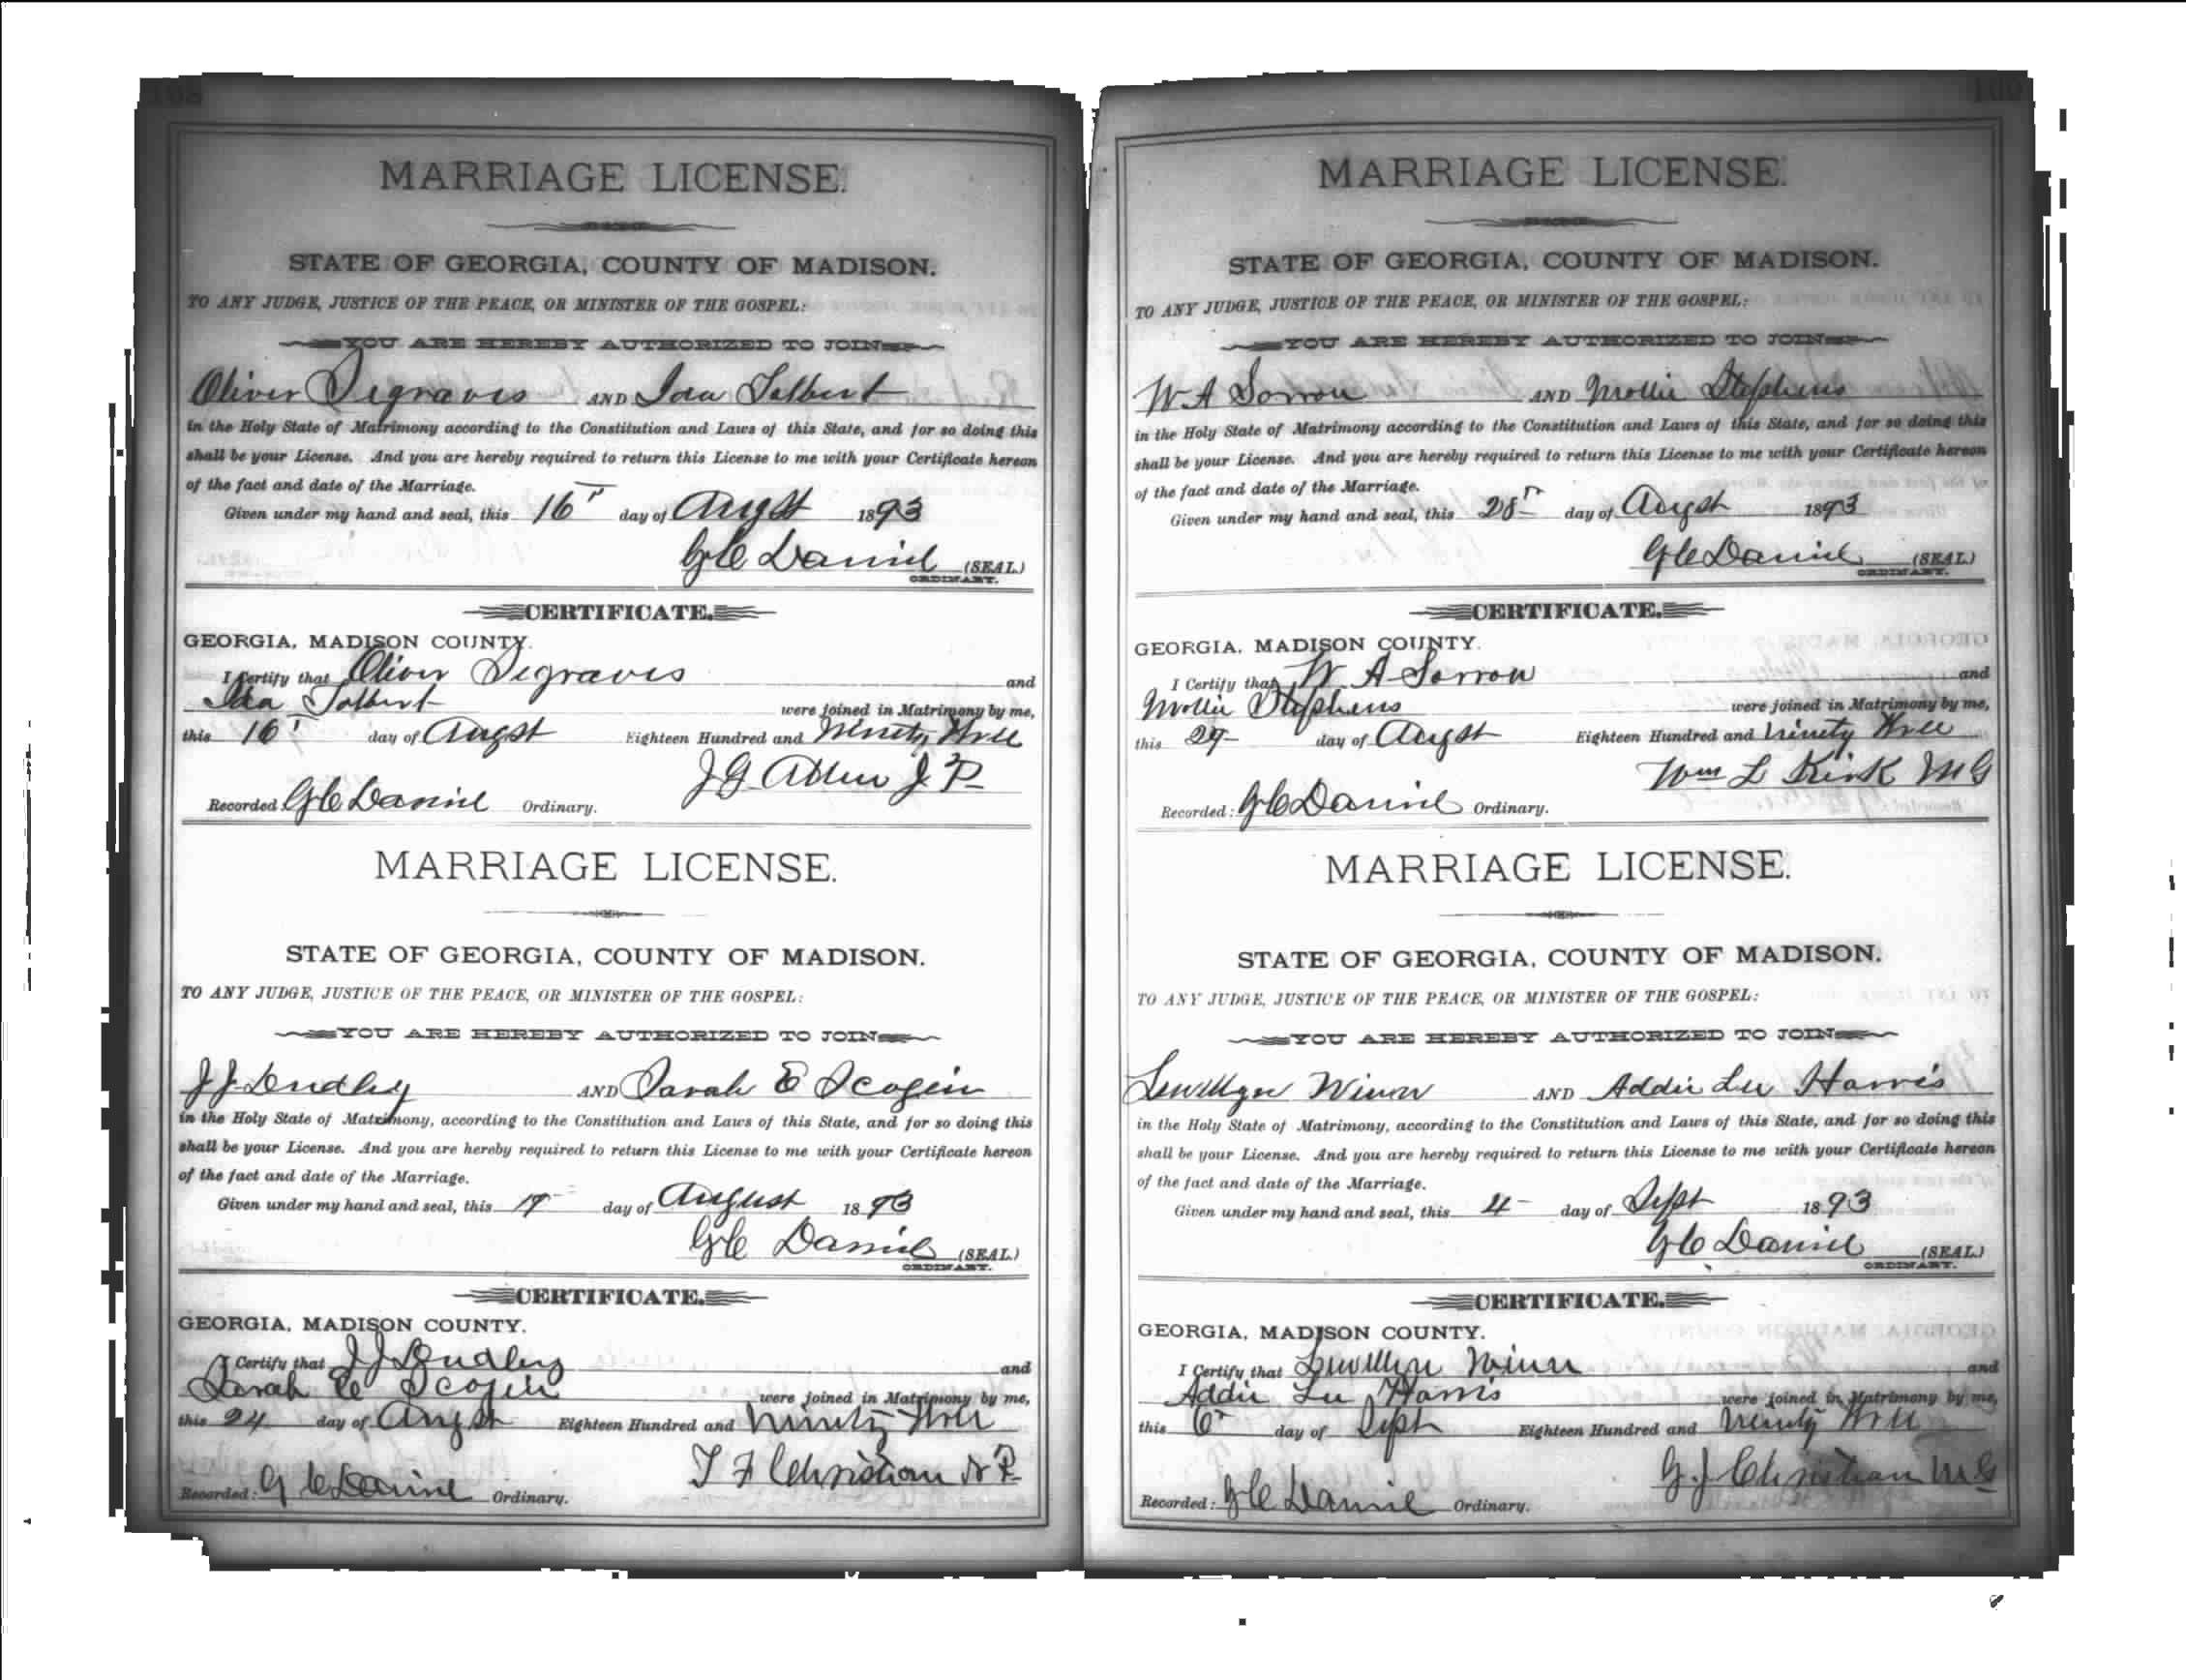 108
MARRIAGE LICENSE.
STATE OF GEORGIA, COUNTY OF MADISON.
TO ANY JUDGE, JUSTICE OF THE PEACE, OR MINISTER OF THE GOSPEL:
YOU ARE HEREBY AUTHORIZED TO JOIN
Oliver Segraves AND Ida Tolbert
in the Holy State of Matrimony according to the Constitution and Laws of this State, and for so doing this
shall be your License. And you are hereby required to return this License to me with your Certificate hereon
of the fact and date of the Marriage.
Given under my hand and seal, this 16" day of Augst 1893
G C Daniel (SEAL)
ORDINARY.
CERTIFICATE.
GEORGIA, MADISON COUNTY.
I Certify that Oliver Segraves and
Ida Tolbert were joined in Matrimony by me,
this 16 day of Augst Eighteen Hundred and Ninety three
J G Allen J P
Recorded G C Daniel Ordinary.
MARRIAGE LICENSE.
STATE OF GEORGIA, COUNTY OF MADISON.
TO ANY JUDGE, JUSTICE OF THE PEACE, OR MINISTER OF THE GOSPEL:
YOU ARE HEREBY AUTHORIZED TO JOIN
J J Dudley AND Sarah E Scogin
in the Holy State of Matrimony, according to the Constitution and Laws of this State, and for so doing this
shall be your License. And you are hereby required to return this License to me with your Certificate hereon
of the fact and date of the Marriage.
Given under my hand and seal, this day of August 1893
G C Daniel (SEAL)
ORDINARY.
CERTIFICATE.
GEORGIA, MADISON COUNTY.
I Certify that J J Dudley and
Sarah E Scogin were joined in Matrimony by me,
this 24 day of Augst Eighteen Hundred and ninety three
T F Christian N P
Recorded: G C Daniel Ordinary.
109
MARRIAGE LICENSE.
STATE OF GEORGIA, COUNTY OF MADISON.
TO ANY JUDGE, JUSTICE OF THE PEACE, OR MINISTER OF THE GOSPEL:
YOU ARE HEREBY AUTHORIZED TO JOIN
W A Sorrow AND Mollie Stephens
in the Holy State of Matrimony according to the Constitution and Laws of this State, and for so doing this
shall be your License. And you are hereby required to return this License to me with your Certificate hereon
of the fact and date of the Marriage.
Given under my hand and seal, this 28 day of Augst 1893
G C Daniel (SEAL)
ORDINARY.
CERTIFICATE.
GEORGIA, MADISON COUNTY.
I Certify that W A Sorrow and
Mollie Stephens were joined in Matrimony by me,
this 29 day of Augst Eighteen Hundred and Ninety three
Wm L M G
Recorded: G C Daniel Ordinary.
MARRIAGE LICENSE.
STATE OF GEORGIA, COUNTY OF MADISON.
TO ANY JUDGE, JUSTICE OF THE PEACE, OR MINISTER OF THE GOSPEL:
YOU ARE HEREBY AUTHORIZED TO JOIN
Lewellyn Winn AND Addie Lee Harris
in the Holy State of Matrimony, according to the Constitution and Laws of this State, and for so doing this
shall be your License. And you are hereby required to return this License to me with your Certificate hereon
of the fact and date of the Marriage.
Given under my hand and seal, this 4 day of Sept 1893
G C Daniel (SEAL)
ORDINARY.
CERTIFICATE.
GEORGIA, MADISON COUNTY.
I Certify that Lewellyn Winn and
Addie Lee Harris were joined in Matrimony by me,
this 6 day of Sept Eighteen Hundred and ninety three
G. J Christian M G
Recorded: G C Daniel Ordinary.